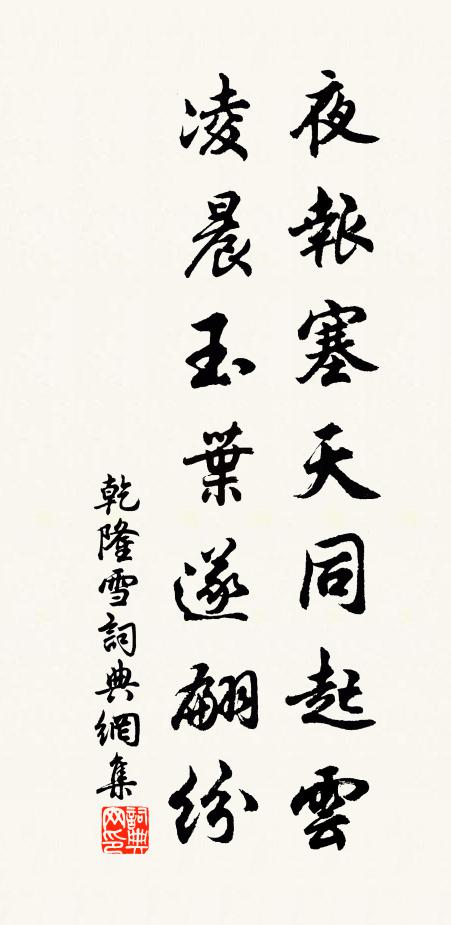 夜報塞天同起雲
凌晨玉葉遂翩紛
乾隆雪詞典網集
詞典網印